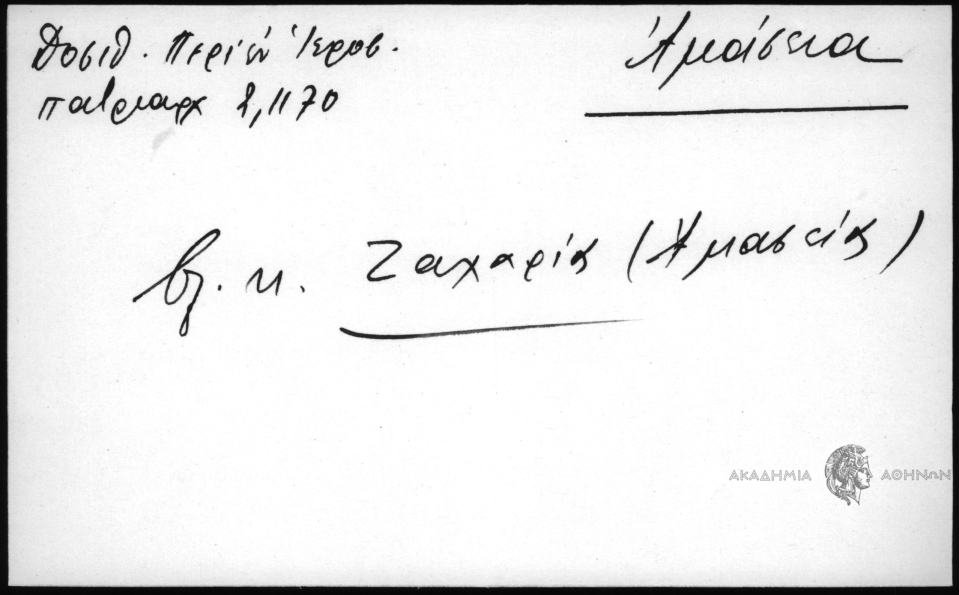 Δοσιθ. Περί ἐν Ἱεροσ.
πατριαρχ 2, 1170
Ἀμάσεια
βλ. κ. Ζαχαρίας (Ἀμασείας)
ΑΚΑΔΗΜΙΑ ΑΘΗΝΩΝ